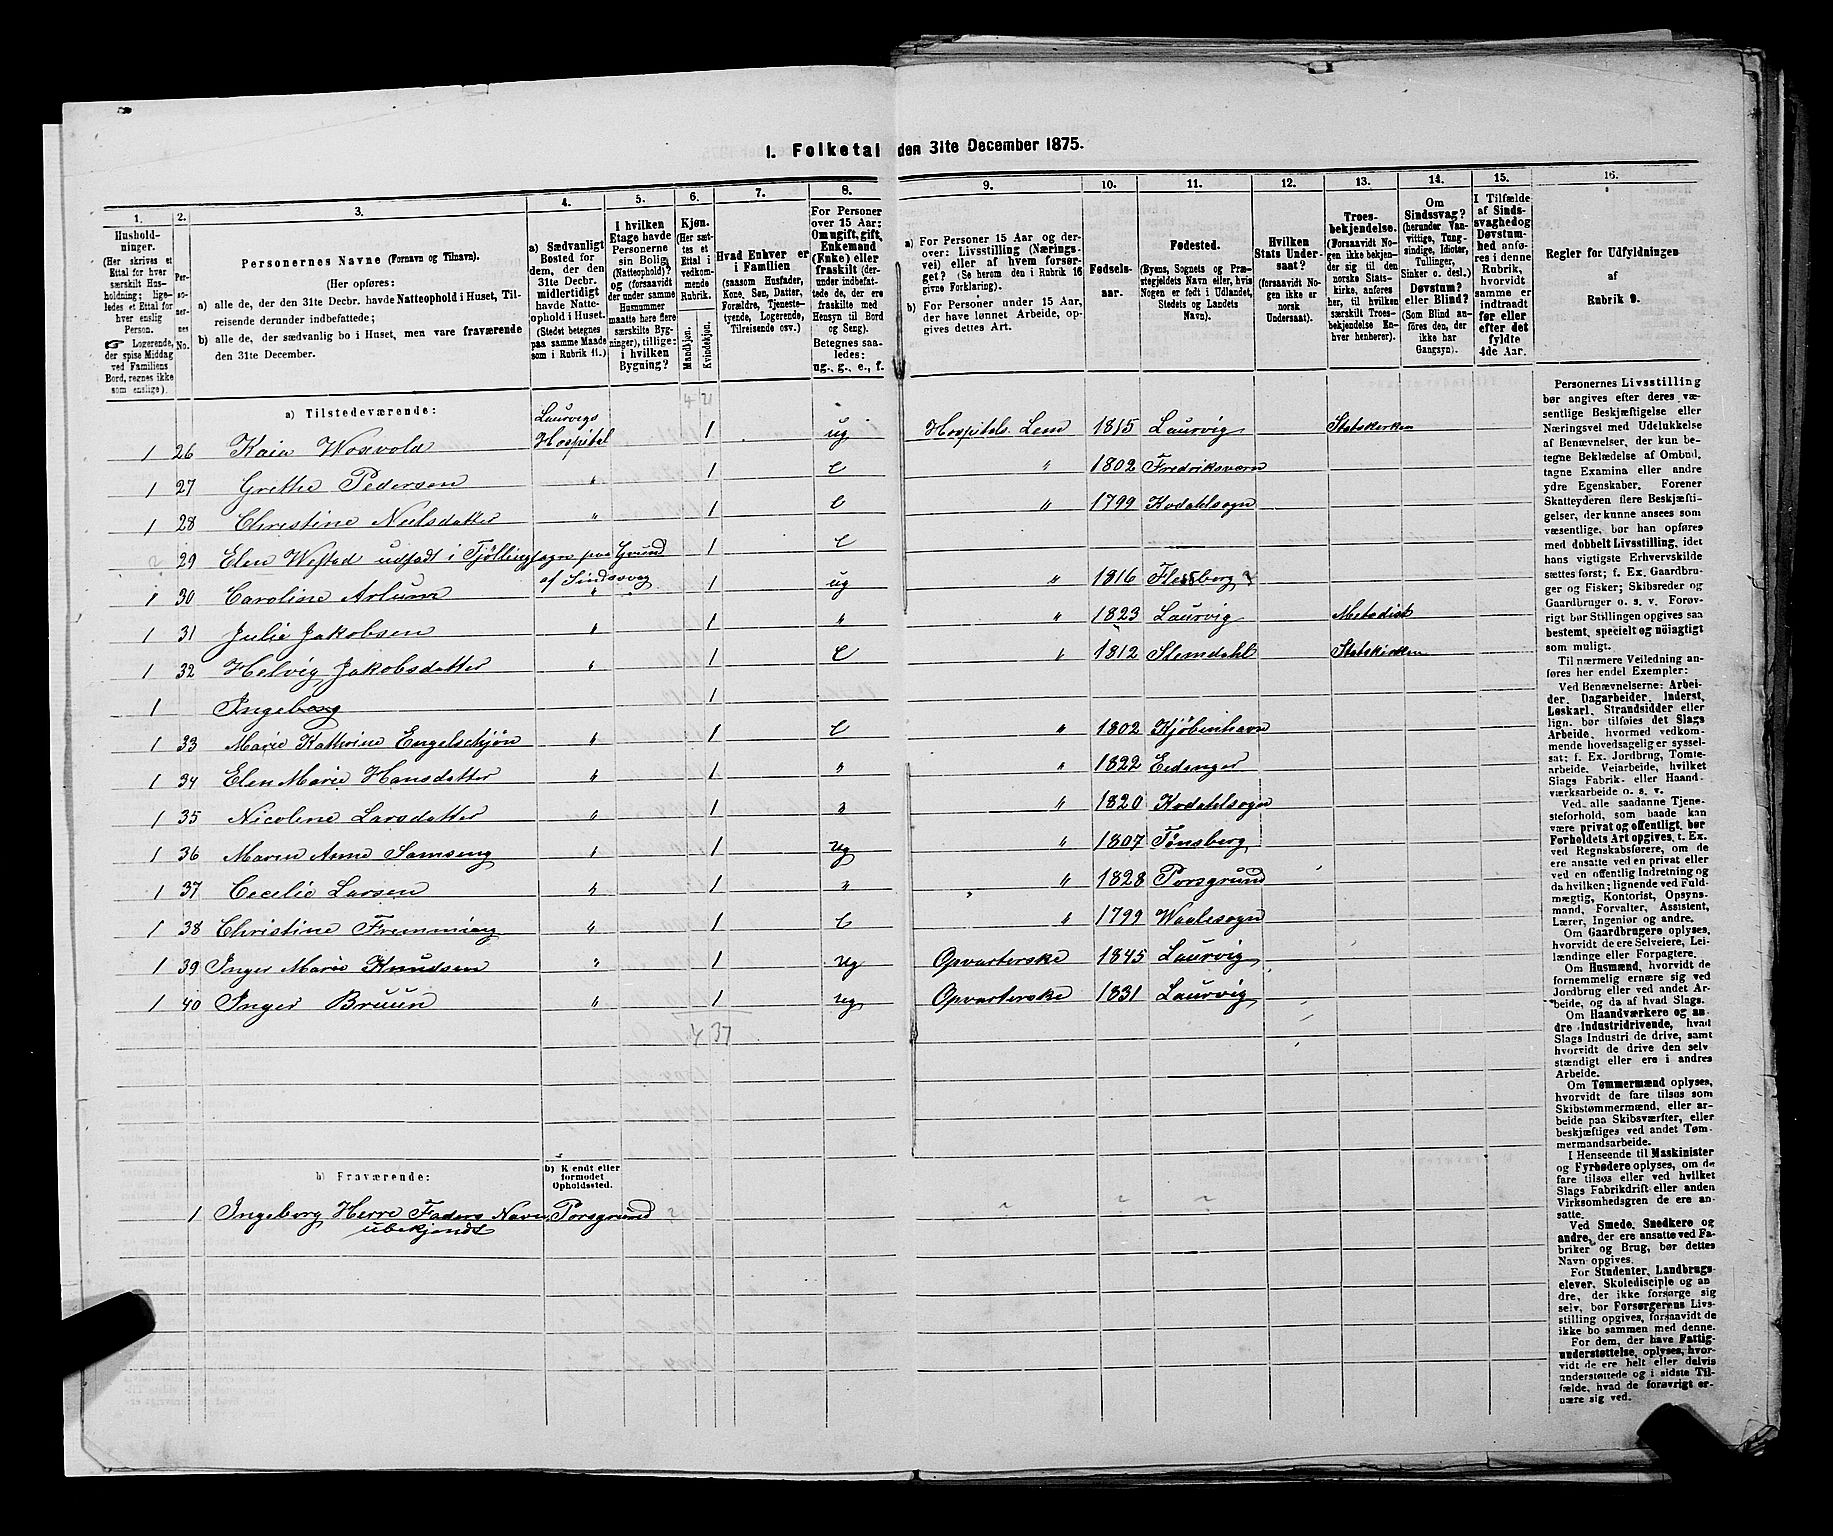 1. Folketal den 31te December 1875.
1. 2. 3. 4. 5. 6. 7. 8. 9. 10. 11. 12. 13. 14. 15. 16.
Hushold-
ninger.
(Her skrives et
Ettal for hver
særskilt Hus-
holdning; lige-
ledes et Ettal for
hver enslig
Person.
☞ Logerende,
der spise Middag
ved Familiens
Bord, regnes ikke
som enslige).
Per-
so-
ner-
nes
No.
Personernes Navne (Fornavn og Tilnavn).
(Her opføres:
a) alle de, der den 31te Decbr. havde Natteophold i Huset, Til-
reisende derunder indbefattede;
b) alle de, der sædvanlig bo i Huset, men vare fraværende
den 31te December.
a) Sædvanligt
Bosted for
dem, der den
31te Decbr.
midlertidigt
havde Natte-
ophold i Huset.
(Stedet betegnes
paa samme Maade
som i Rubrik 11.)
I hvilken
Etage havde
Personerne
sin Bolig
(Natteophold)?
og (forsaavidt
der under samme
Husnummer
maatte høre flere
særskilte Byg-
ninger), tillige:
i hvilken
Bygning?
Kjøn.
(Her sæt-
tes et
Ettal i
vedkom-
mende
Rubrik.
Mandkjøn.
Kvindekjøn.
Hvad Enhver er
i Familien
(saasom Husfader,
Kone, Søn, Datter,
Forældre, Tjeneste-
tyende, Logerende,
Tilreisende osv.)
For Personer
over 15 Aar;
Om ugift, gift,
Enkemand
(Enke) eller
fraskilt (der-
under indbefat-
tede de, der ere
fraskilte med
Hensyn til Bord
og Seng).
Betegnes saa-
ledes:
ug., g., e., f.
a) For Personer 15 Aar og der-
over: Livsstilling (Nærings-
vei) eller af hvem forsør-
get? (Se herom den i Rubrik 16
givne Forklaring).
b) For Personer under 15 Aar,
der have lønnet Arbeide, op-
gives dettes Art.
Fødsels-
aar.
Fødested.
(Byens, Sognets og Præ-
stegjeldets Navn eller, hvis
Nogen er født i Udlandet,
Stedets og Landets
Navn).
Hvilken
Stats Under-
saat?
(forsaavidt No-
gen ikke er
norsk
Undersaat).
Troes-
bekjendelse.
(Forsaavidt No-
gen ikke bekjen-
der sig til den
norske Stats-
kirke, anføres
her, til hvilken
særskilt Troes-
bekjendelse En-
hver henhører).
Om
Sindssvag?
(herunder Van-
vittige, Tung-
sindige, Idioter,
Tullinger,
Sinker o. desl.)
Døvstum?
eller Blind?
(Som Blind an-
føres den, der
ikke har
Gangsyn).
I Tilfælde
af Sinds-
svaghed og
Døvstum-
hed anfø-
res i denne
Rubrik,
hvorvidt
samme er
indtraadt
før eller
efter det
fyldte
4de Aar.
Regler for Udfyldningen
af
Rubrik 9.
a) Tilstedeværende: 4 21
1 26 Kaia Woxvold Laurvigs Hospital 1 ug Hospitals Lem 1815 Laurvig Statskirken
1 27 Grethe Pedersen " 1 E " 1802 Fredriksvern
1 28 Christine Neilsdatter " 1 E " 1799 Kodahlsogn
29 Elen Westad udsadt i Tjøllingsogn paa Grund af Sindssvag 1 E
1 30 Caroline Arlum " 1 ug " 1816 Flessberg
1 31 Julie Jakobsen " 1 " " 1823 Laurvig Metodisk
1 32 Helvig Jakobsdatter " 1 E " 1812 Slemdahl Statskirken
1 Ingeborg 1
1 33 Marie Kathrine Engelschjøn " 1 E " 1802 Kjøbinhavn
1 34 Elen Marie Hansdatter " 1 " " 1822 Eidanger
1 35 Nicoline Larsdatter " 1 " " 1820 Kodahlsogn
1 36 Maren Anne Samseng " 1 ug " 1807 Tønsberg
1 37 Cecelie Larsen " 1 " " 1828 Porsgrund
1 38 Christine Fremming " 1 E " 1799 Waalesogn
1 39 Inger Marie Knudsen " 1 ug Opvarterske 1845 Laurvig
1 40 Inger Bruun " 1 ug Opvarterske 1831 Laurvig
4 37
b) Fraværende:
b) Kjendt eller
formodet
Opholdssted.
1 Ingeborg Herre Faders Navn Porsgrund
ubekjendt
Personernes Livsstilling
bør angives efter deres væ-
sentlige Beskjæftigelse eller
Næringsvei med Udelukkelse
af Benævnelser, der kun be-
tegne Beklædelse af Ombud,
tagne Examina eller andre
ydre Egenskaber. Forener
Skatteyderen flere Beskjæfti-
gelser, der kunne ansees som
væsentlige, bør han opføres
med dobbelt Livsstilling, idet
hans vigtigste Erhvervskilde
sættes først; f. Ex. Gaardbru-
ger og Fisker; Skibsreder og
Gaardbruger o. s. v. Forøv-
rigt bør Stillingen opgives saa
bestemt, specielt og nøiagtigt
som muligt.
Til nærmere Veiledning an-
føres her endel Exempler:
Ved Benævnelserne: Arbei-
der, Dagarbeider, Inderst,
Løskarl, Strandsidder eller
lign. bør tilføies det Slags
Arbeide, hvormed vedkom-
mende hovedsagelig er syssel-
sat; f. Ex. Jordbrug, Tomte-
arbeide, Veiarbeide, hvilket
Slags Fabrik- eller Haand-
værksarbeide o. s. v.
Ved alle saadanne Tjene-
steforhold, som baade kan
være privat og offentligt, bør
Forholdets Art opgives, t. Ex.
ved Regnskabsførere, om de
ere ansatte ved en privat eller
ved en offentlig Indretning og
da hvilken; lignende ved Fuld-
mægtig, Kontorist, Opsyns-
mand, Forvalter, Assistent,
Lærer, Ingeniør og andre.
Om Gaardbrugere oplyses,
hvorvidt de ere Selveiere, Lei-
lændinge eller Forpagtere.
Om Husmænd, hvorvidt de
fornemmelig ernære sig ved
Jordbrug eller ved andet Ar-
beide, og da af hvad Slags.
Om Haandværkere og an-
dre Industridrivende, hvad
Slags Industri de drive, samt
hvorvidt de drive den selv
stændigt eller ere i andres
Arbeide.
Om Tømmermænd oplyses,
hvorvidt de fare tilsøs som
Skibstømmermænd, eller ar-
beide paa Skibsværfter, eller
beskjæftiges ved andet Tøm-
mermandsarbeide.
I Henseende til Maskinister
og Fyrbødere oplyses, om de
fare tilsøs eller ved hvilket
Slags Fabrikdrift eller anden
Virksomhedsgren de ere an-
satte.
Ved Smede, Snedkere og
andre, der ere ansatte ved Fa-
briker og Brug, bør dettes
Navn opgives.
For Studenter, Landbrugs-
elever, Skoledisciple og an
dre, der ikke forsørge sig
selv, bør Forsørgerens Livs-
stilling opgives, forsaavidt de
ikke bo sammen med denne.
For dem, der have Fattig-
understøttelse, oplyses, hvor-
vidt de ere helt eller delvis
understøttede og i sidste Til-
fælde, hvad de forøvrigt er-
nære sig ved.